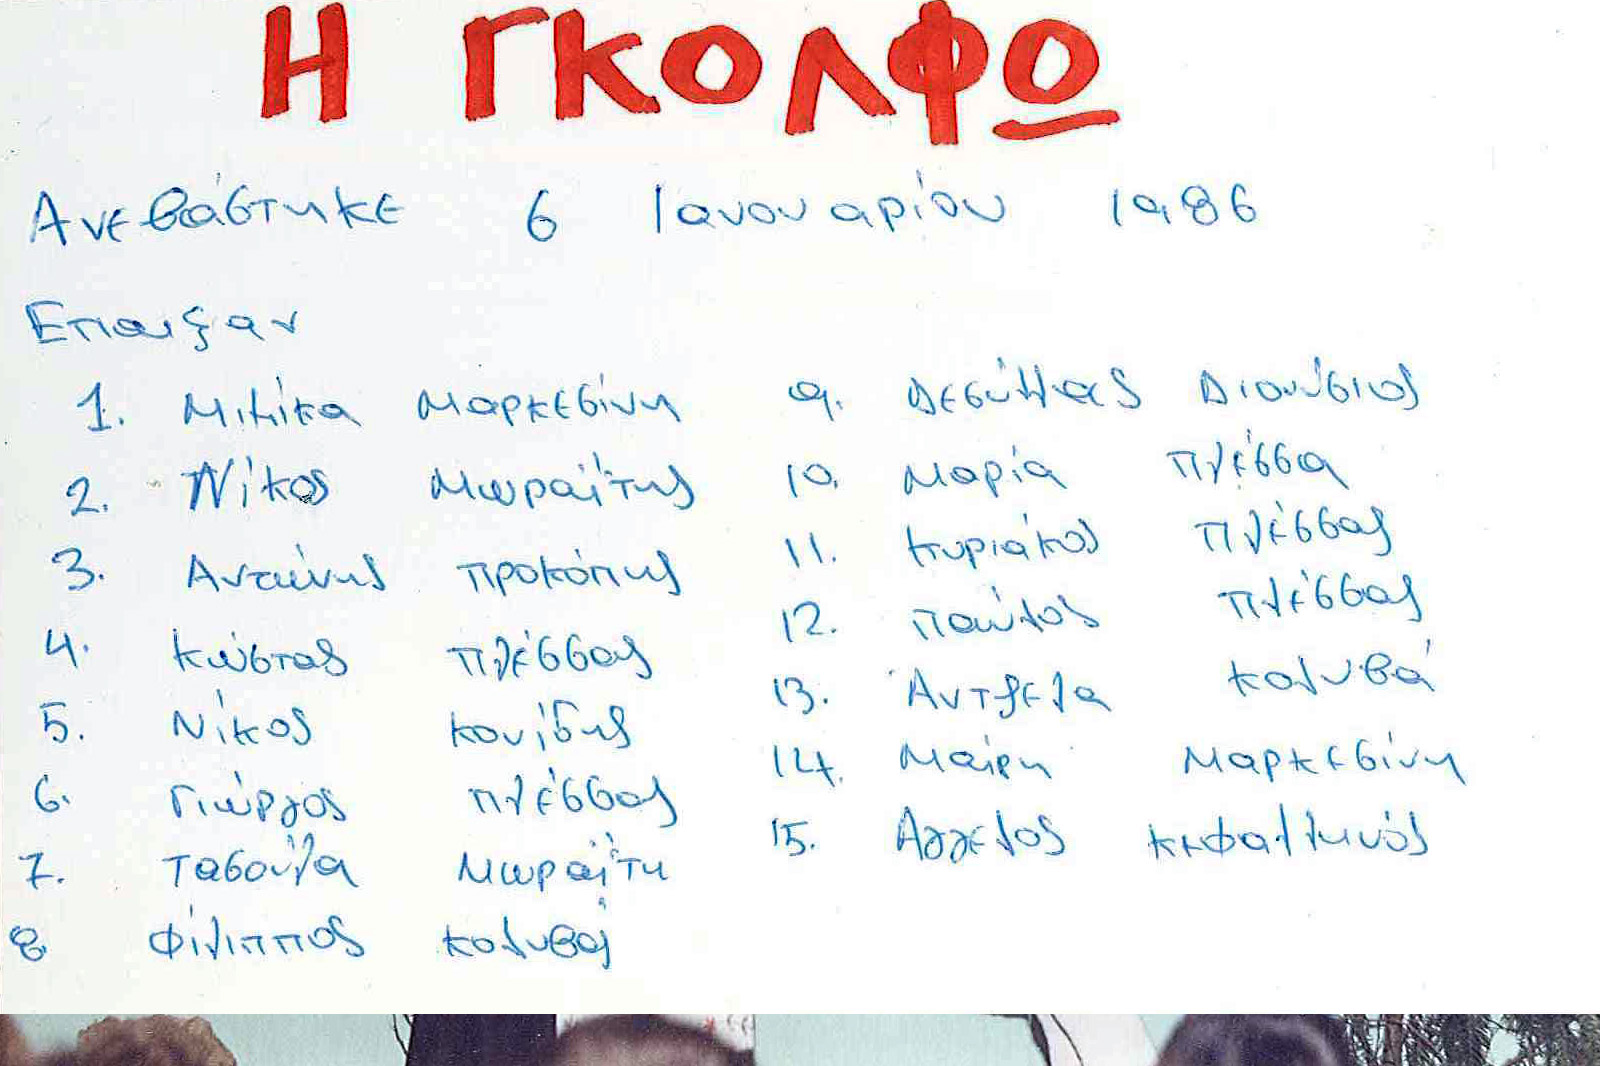 Η ΓΚΟΛΦΩ
Ανεβάστηκε 6 Ιανουαρίου 1986
Επαιξαν
1. Μιμίκα Μαρκεσίνη
2. Νίκος Μωραΐτης
3. Αντώνης Προκόπης
4. Κώστας Πλέσσας
5. Νίκος Κονίδης
6. Γιώργος Πλέσσας
7. Τασούλα Μωραΐτη
8 Φίλιππος Κολυβάς
9. Δεσύλλας Διονύσιος
10. Μαρία Πλέσσα
11. Κυριάκος Πλέσσας
12. Παύλος Πλέσσας
13. Άντζελα Κολυβά
14. Μαίρη Μαρκεσίνη
15. Αγγελος Κεφαλληνός